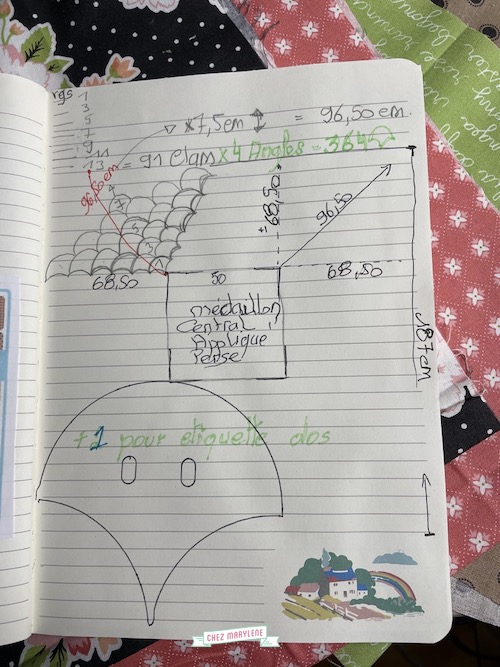 rgs 1
3
5
7
9
11
13
x7,5cm = 96,50 cm
= 91 Clam x 4 Angles = 364
96,50 cm
± 68,50
96,50
68,50
50
68,50
187 cm
médaillon
Central
Applique
+1 pour etiquette dos
CHEZ MARYLENE